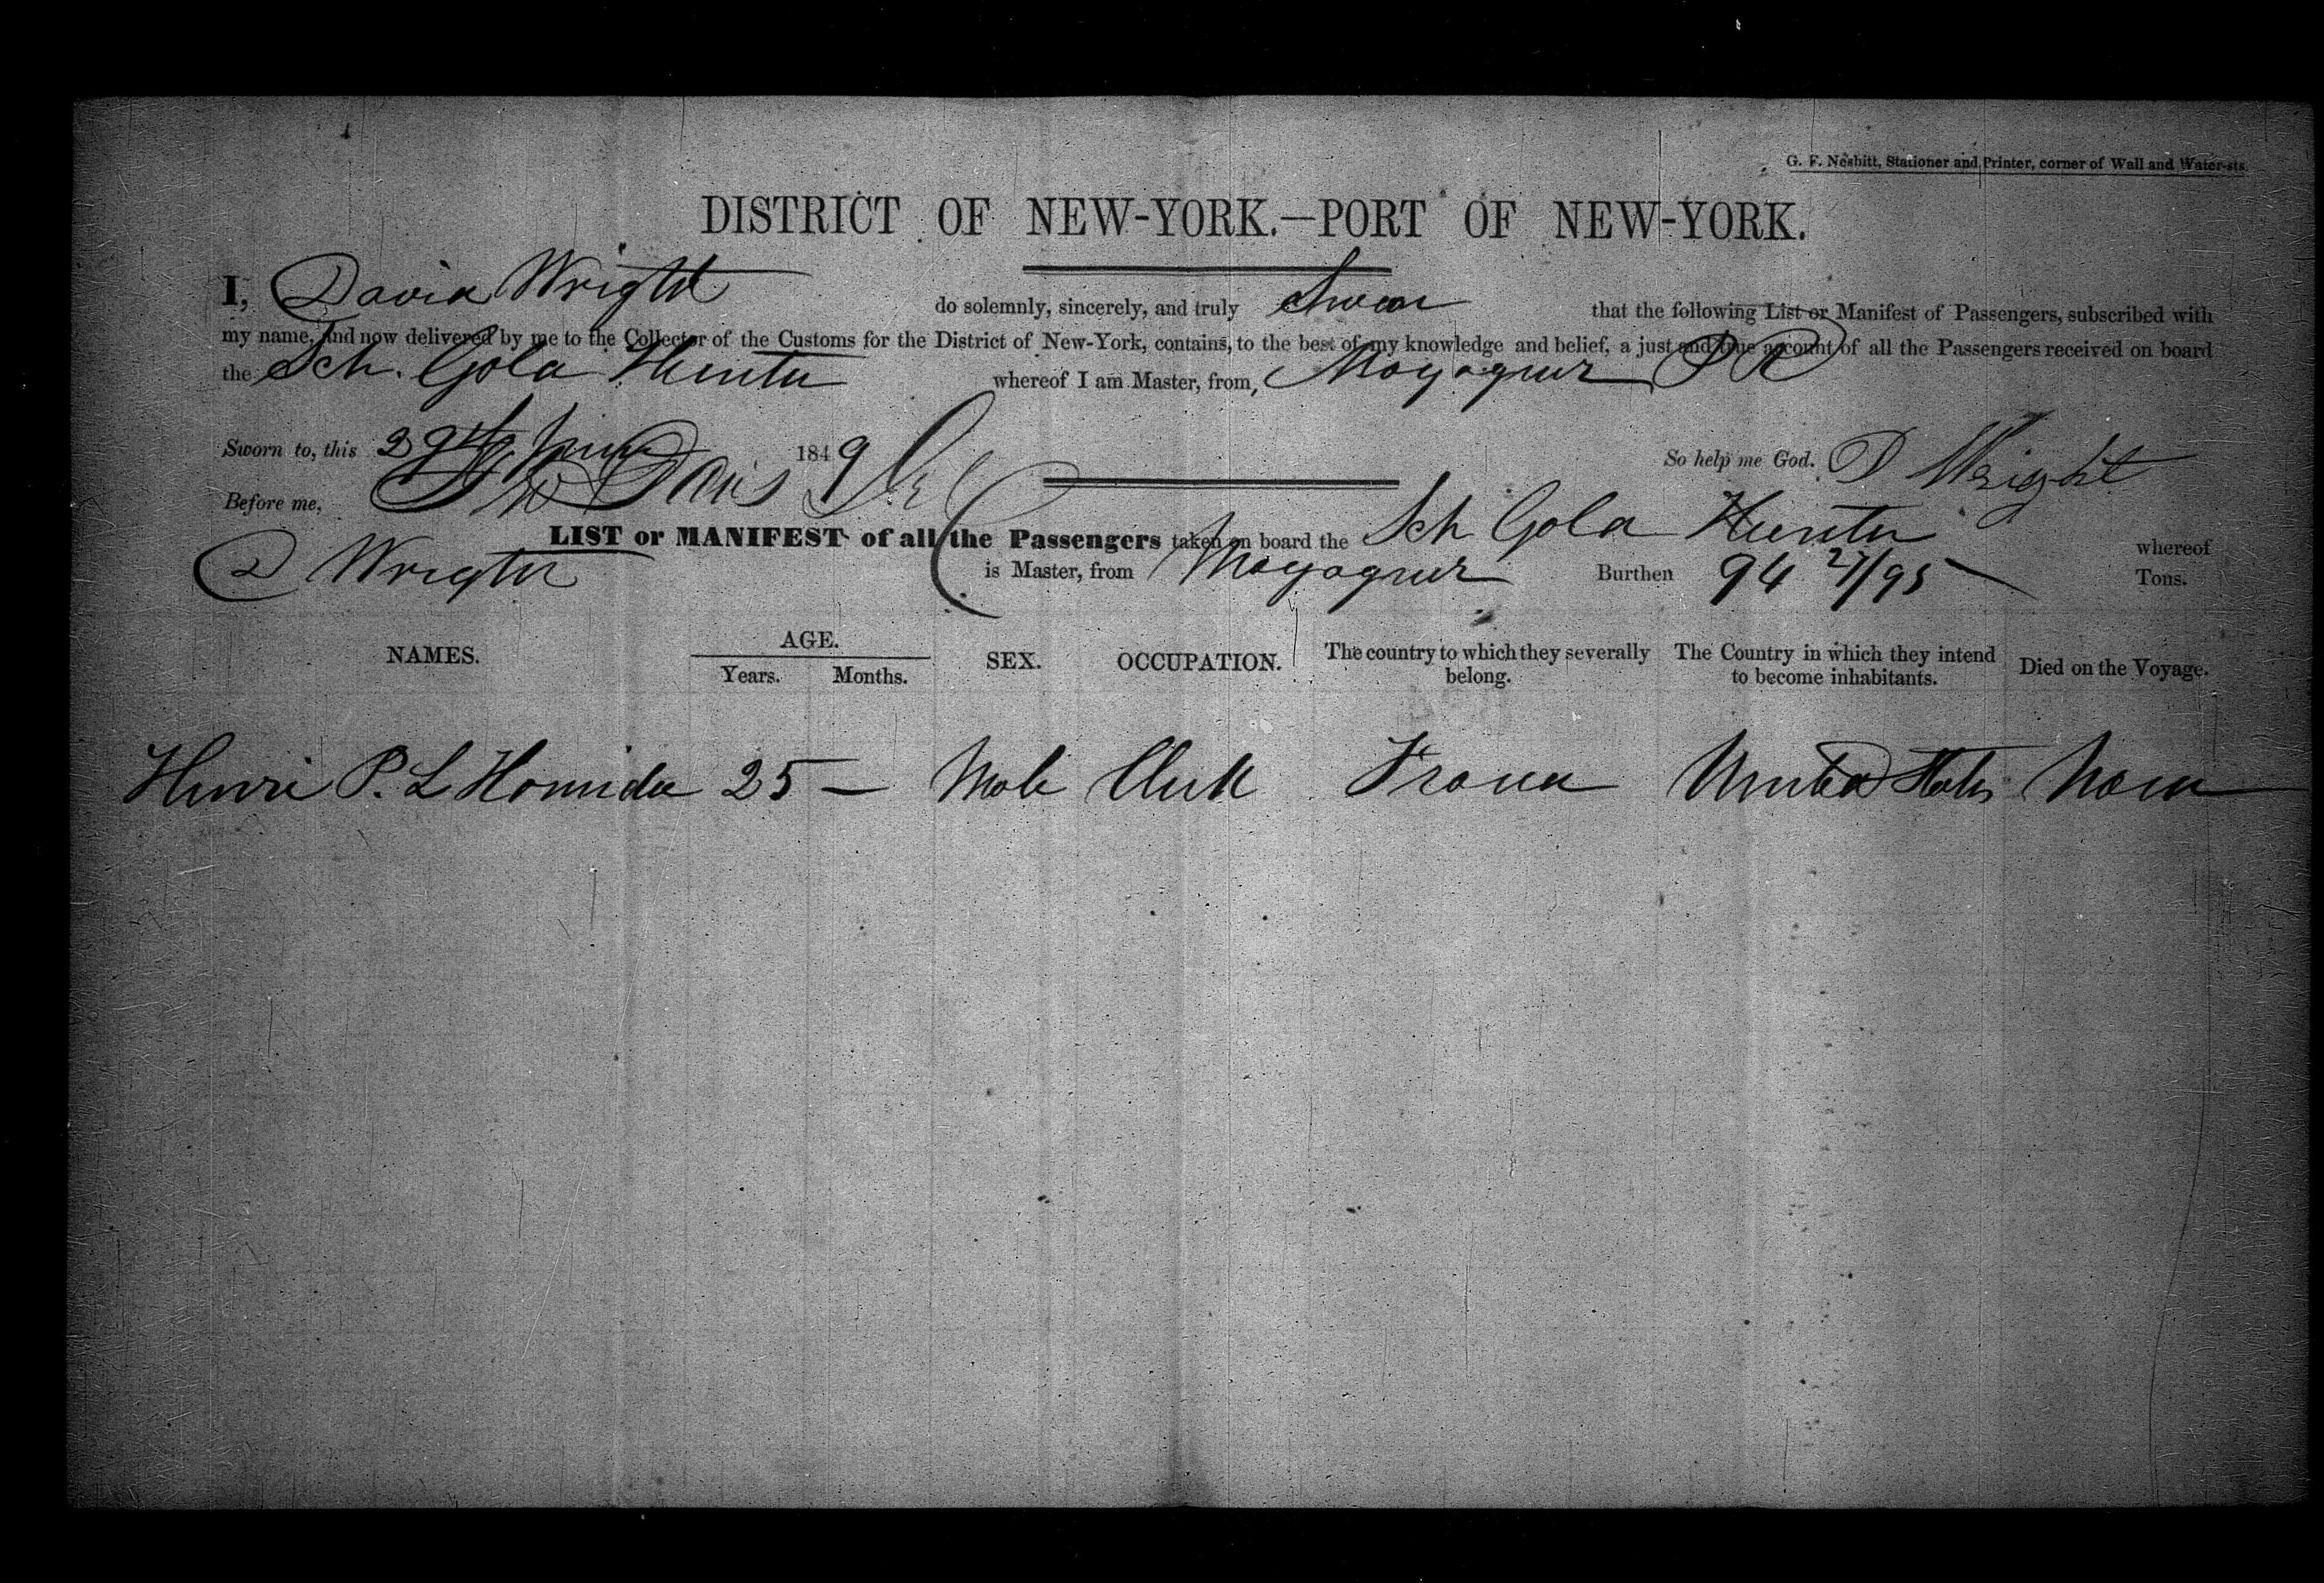 G. F. Nesbitt, Stationer and Printer, corner of Wall and Water-sts.
DISTRICT OF NEW-YORK.—PORT OF NEW-YORK.
I, David Wright do solemnly, sincerely, and truly Swear that the following List or Manifest of Passengers, subscribed with
my name, and now delivered by me to the Collector of the Customs for the District of New-York, contains, to the best of my knowledge and belief, a just and true account of all the Passengers received on board
the Sch. Gold Hunter whereof I am Master, from, Mayaguez P R
Sworn to, this 29th June 1849 So help me God. D Wright
Before me, Davis
LIST or MANIFEST of all the Passengers taken on board the Sch Gold Hunter whereof
D Wright is Master, from Mayaguez Burthen 94 27/95 Tons.
NAMES. AGE. Years. Months. SEX. OCCUPATION. The country to which they severally belong. The Country in which they intend to become inhabitants. Died on the Voyage.
Henri P. L 25 — Male Clerk France United States None